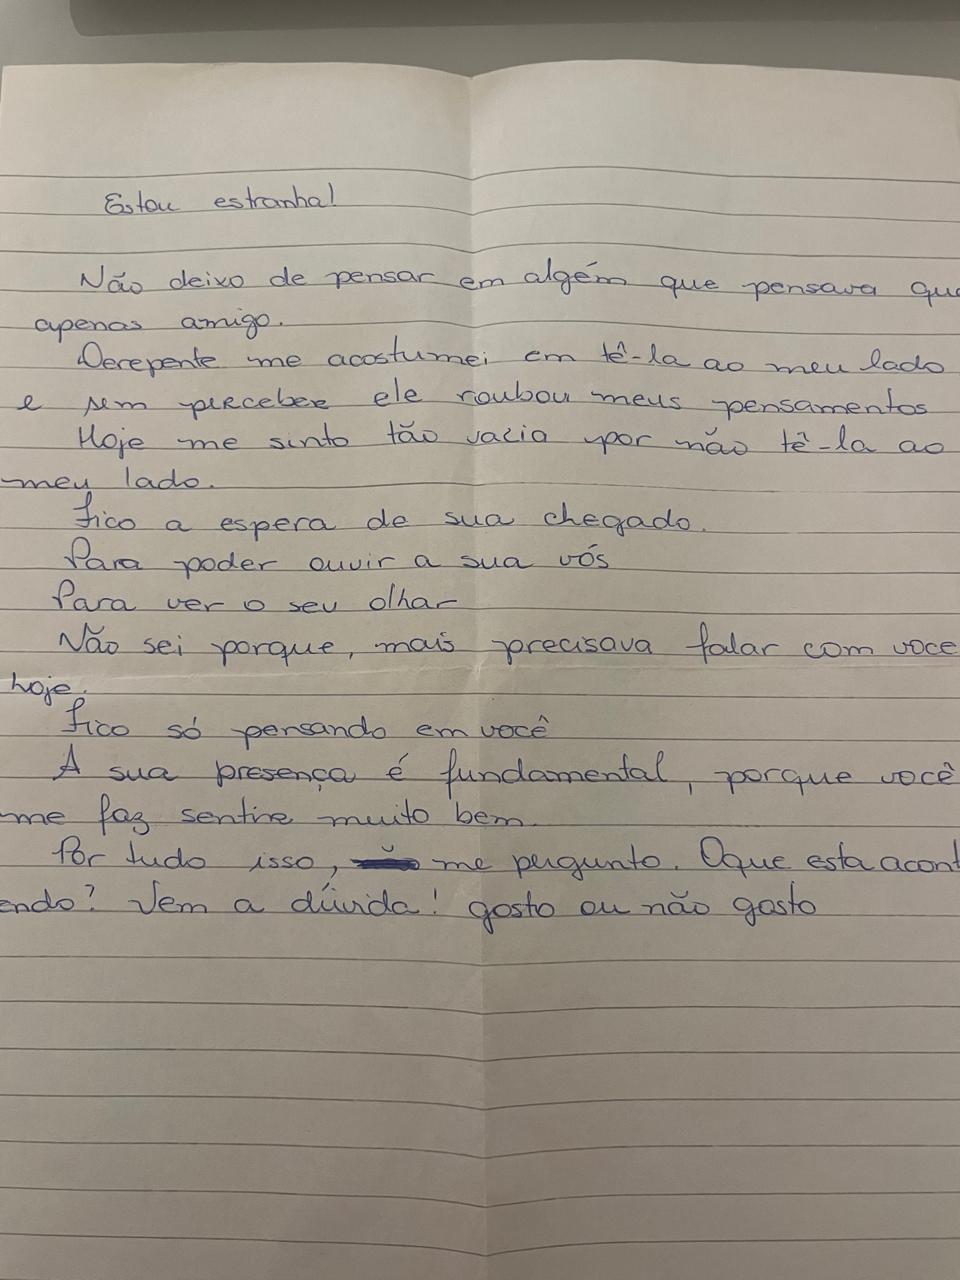 Estou estranha!
Não deixo de pensar em algém que pensava que
apenas amigo.
Derepente me acostumei em tê-la ao meu lado
e sem perceber ele roubou meus pensamentos
Hoje me sinto tão vazia por não tê-la ao
meu lado.
Fico a espera de sua chegado.
Para poder ouvir a sua vós
Para ver o seu olhar
Não sei porque, mais precisava falar com voce
hoje.
Fico só pensando em você
A sua presença é fundamental, porque você
me faz sentire muito bem.
Por tudo isso, me pergunto. Oque esta acont
endo? Vem a dúvida! gosto ou não gosto